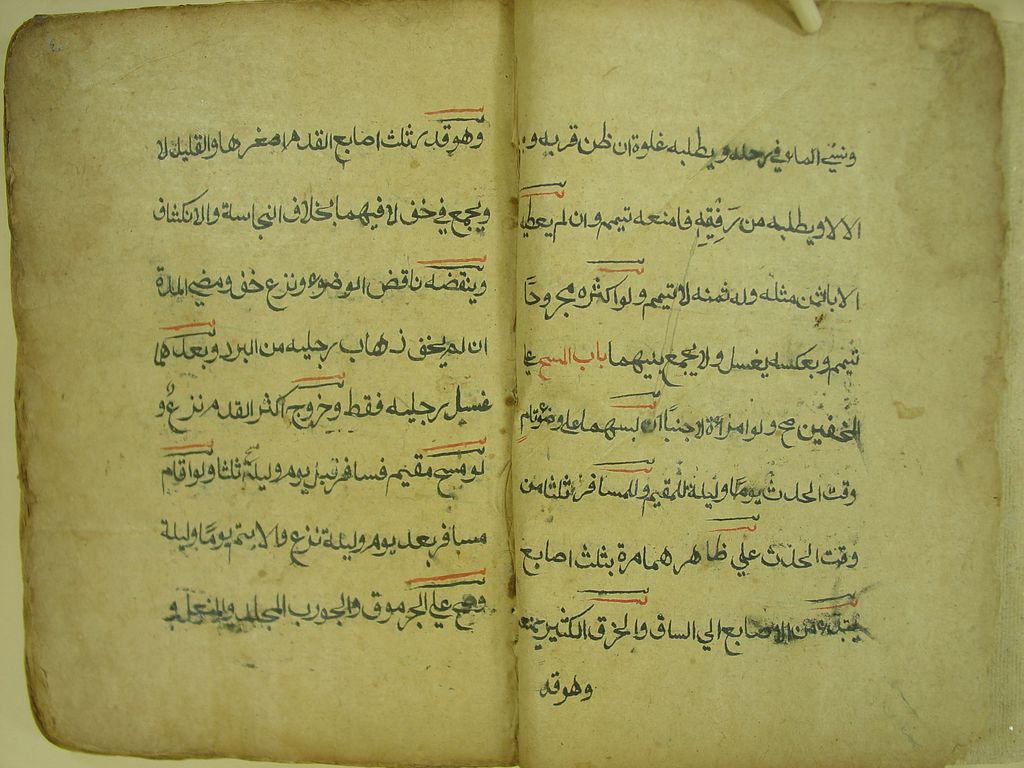 ونسي الماء في رحله ويطلبه غلوة ان ظن قربه و
الا لا ويطلبه من رَفُيقِه فا منعه تيمم وان لم يعطي
الا باثمن مثله وله ثمنه لا تيمم ولو اكثره مجروحًا
تيمم وبعكسه يغسل ولا يجمع بينهما باب المسح علي
الخفين صح ولو امراة لا جنبًا ان لبسهما علي وضوٍء تامٍ
وقت الحدث يومًا وليلة للمقيم وللمسافر ثلثا من
وقت الحدث علي ظاهرهما مرة بثلث اصابع
يبتدء من الاصابع الي الساق والخرق الكبير يمنعه
وهو قد
وهو قدر ثلث اصابع القدم اصغرها والقليل لا
ويجمع في خف لا فيهما بخلاف النجاسة والانكشاف
وينقضه ناقض الوضوء ونزع خف ومضي المدة
ان لم يخف ذهاب رجليه من البرد وبعدهما
غسل رجليه فقط وخروج اكثر القدم نزع ٌ و
لو مسح مقيم فسافر قبل يوم وليلة ثلثا ولو اقام
مسافر بعد يوم وليلة نزع والا يتم يومًا وليلة
وصح علي الجرموق والجورب المجلد والمنعل و